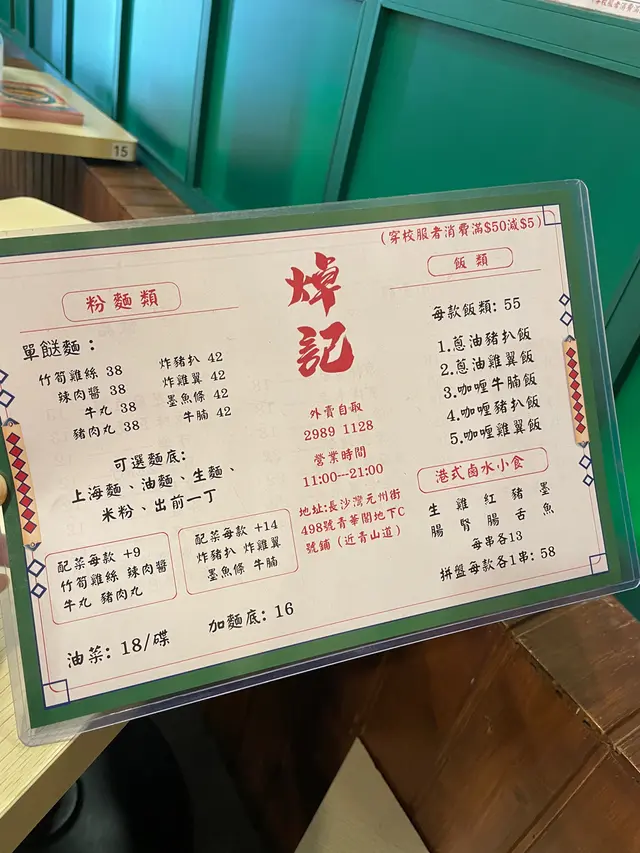 15
(穿校服者消費滿$50減$5)
粉麵類
單餸麵:
竹筍雞絲 38
辣肉醬 38
牛丸 38
豬肉丸 38
炸豬扒 42
炸雞翼 42
墨魚條 42
牛腩 42
可選麵底:
上海麵、油麵、生麵、
米粉、出前一丁
配菜每款 +9
竹筍雞絲 辣肉醬
牛丸 豬肉丸
配菜每款 +14
炸豬扒 炸雞翼
墨魚條 牛腩
油菜: 18/碟
加麵底: 16
焯
記
外賣自取
2989 1128
營業時間
11:00---21:00
地址:長沙灣元州街
498號青華閣地下C
號鋪 (近青山道)
飯類
每款飯類: 55
1.蔥油豬扒飯
2.蔥油雞翼飯
3.咖喱牛腩飯
4.咖喱豬扒飯
5.咖喱雞翼飯
港式鹵水小食
生腸
雞腎
紅腸
豬舌
墨魚
每串各13
拼盤每款各1串: 58